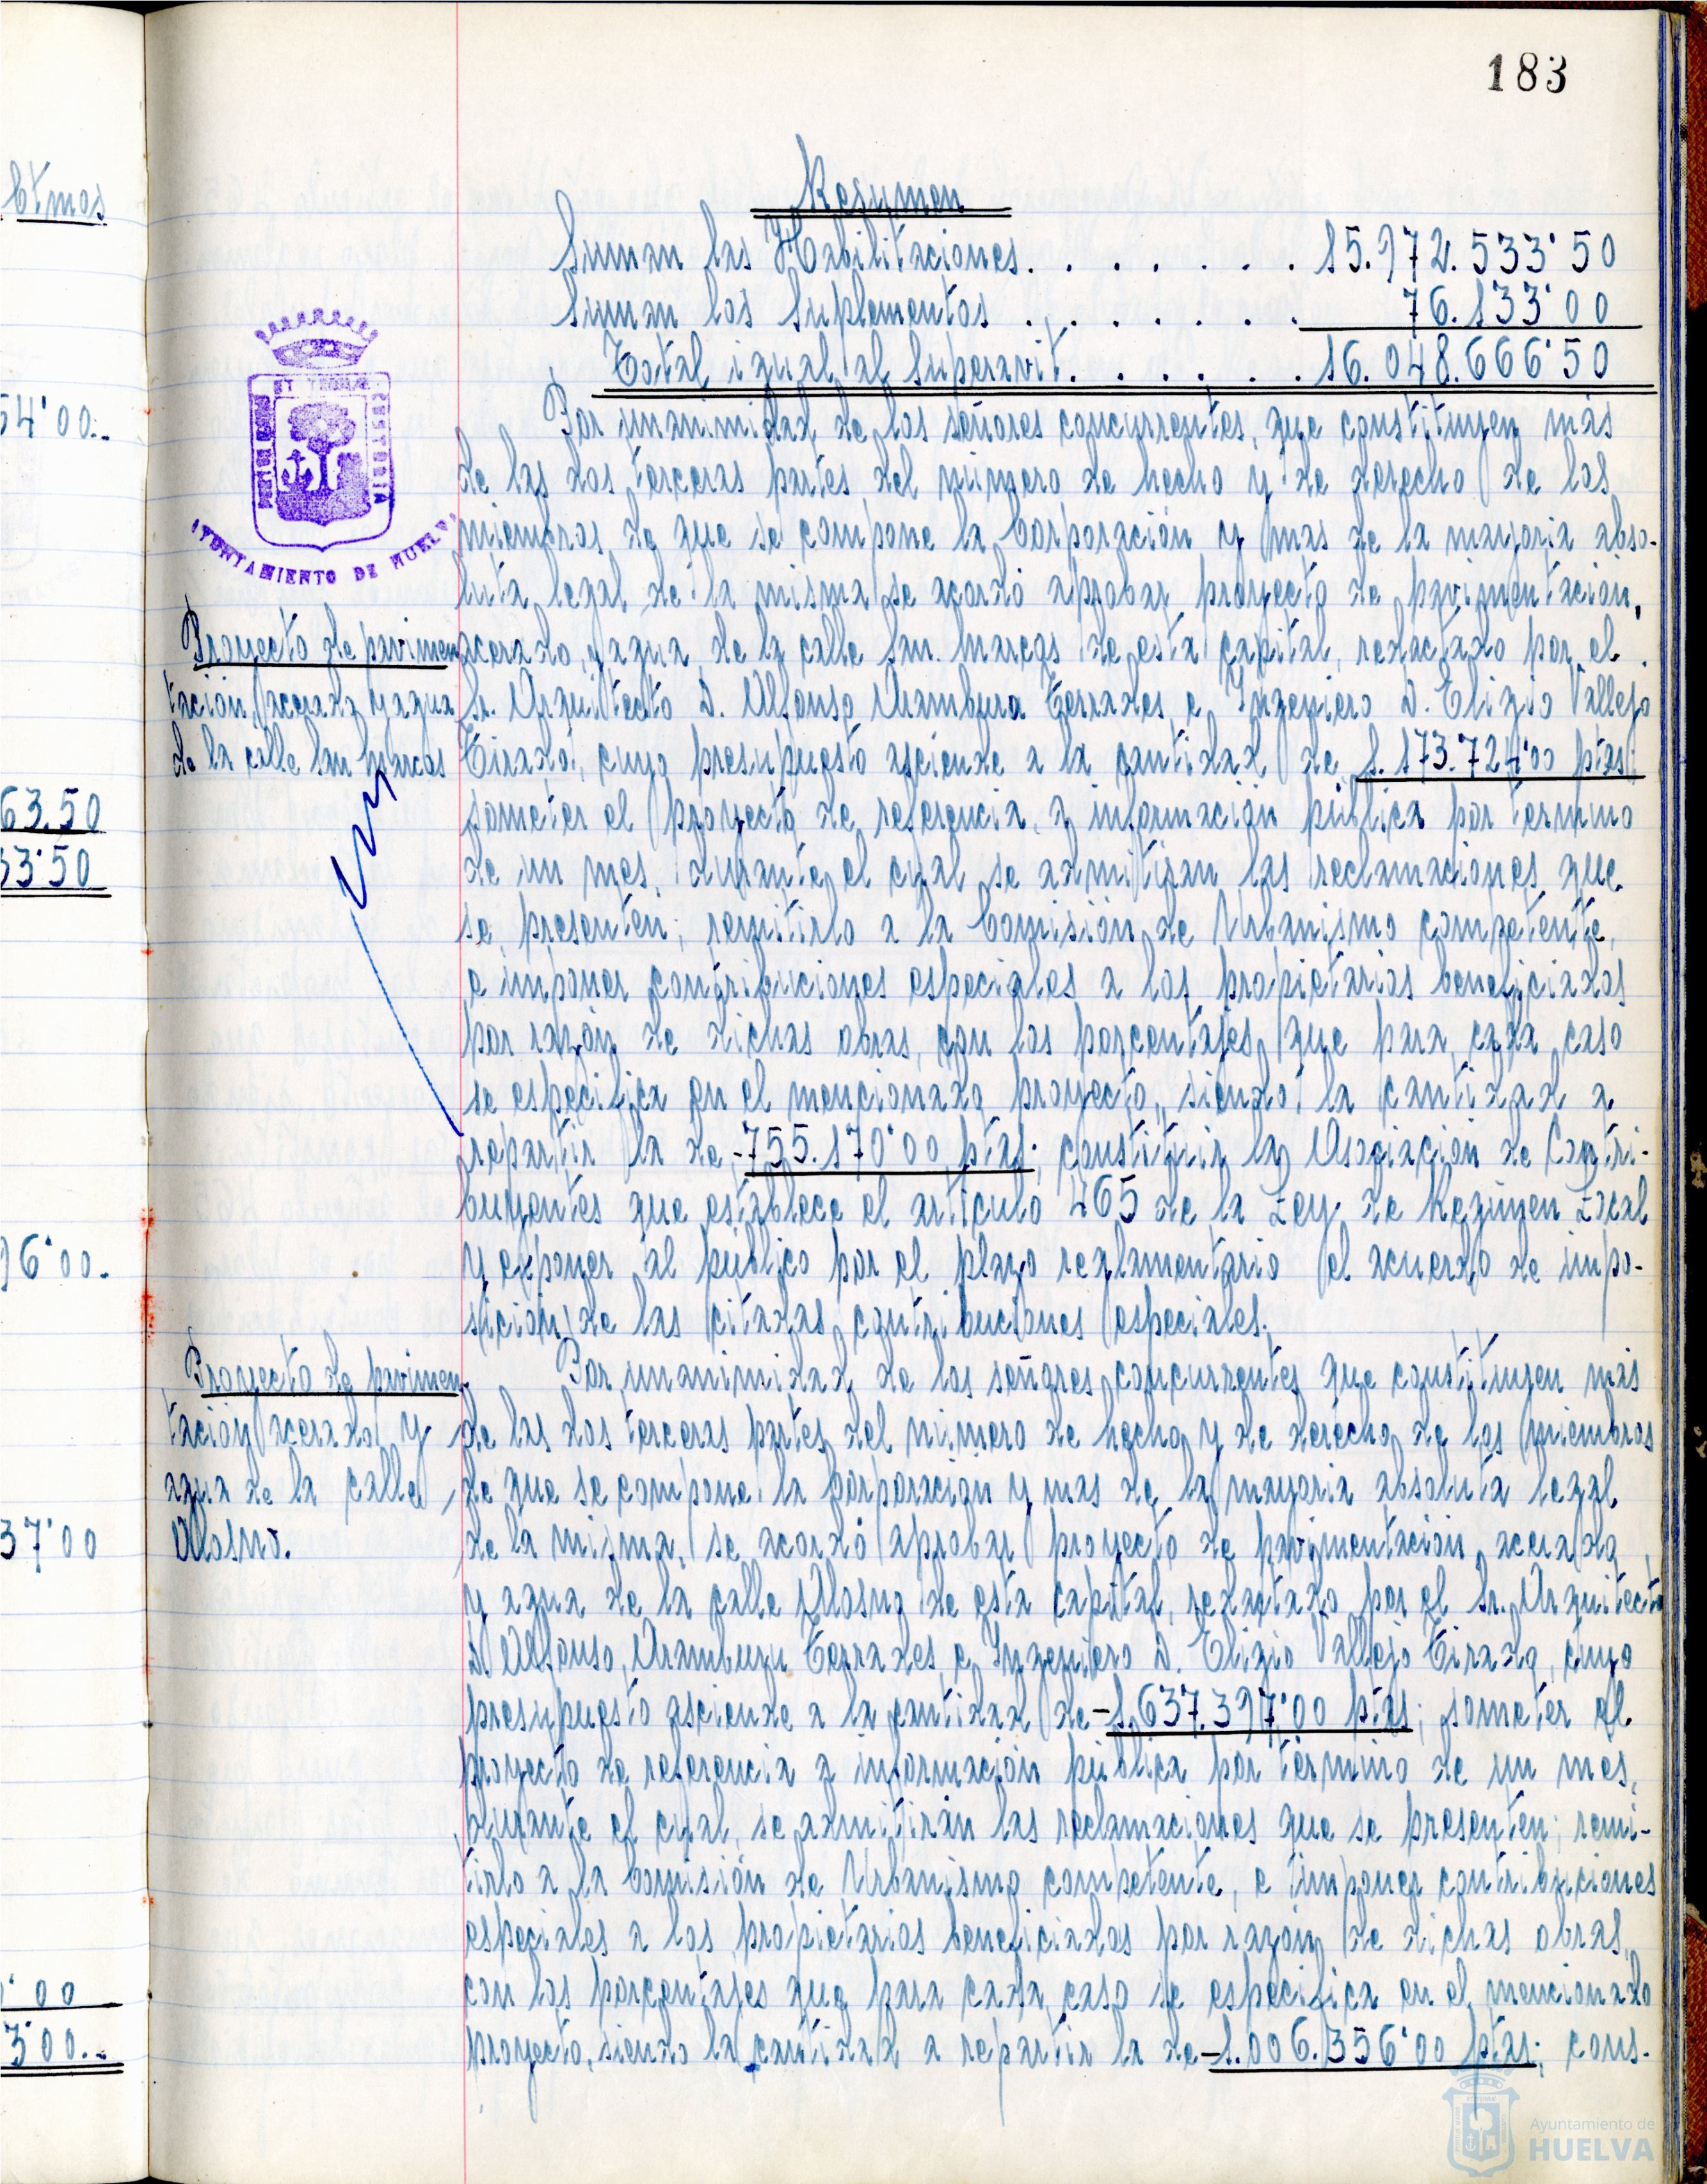 183
Ctmos
Resumen
Suman las Habilitaciones. . . . . . . 15.972.533'50
Suman los Suplementos . . . . . . . 76.133'00
Total igual al Superavit. . . . . . 16.048.666'50
54'00..
63.50
33'50
96'00.
37'00
'00
3'00..
PORTUS MARIS ET TERRAE CUSTODIA
AYUNTAMIENTO DE HUELVA
Proyecto de pavimen
tación, acerado y agua
de la calle San Marcos
Por unanimidad de los señores concurrentes, que constituyen más
de las dos terceras partes del número de hecho y de derecho de los
miembros de que se compone la Corporación y mas de la mayoria abso-
luta legal de la misma se acordó aprobar proyecto de pavimentación,
acerado, y agua de la calle San Marcos de esta capital, redactado por el
Sr. Arquitecto D. Alfonso Aramburu Terrades, e Ingeniero D. Eligio Vallejo
Tirado, cuyo presupuesto asciende a la cantidad de 1.173.724'00 ptas;
someter el proyecto de referencia a información pública por termino
de un mes, durante el cual se admitiran las reclamaciones que
se presenten; remitirlo a la Comisión de Urbanismo competente,
e imponer contribuciones especiales a los propietarios beneficiados
por razón de dichas obras, con los porcentajes que para cada caso
se especifica en el mencionado proyecto, siendo la cantidad a
repartir la de -755.170'00 ptas; constituir la Asociación de Contri-
buyentes que establece el articulo 465 de la Ley de Regimen Local
y exponer al público por el plazo reglamentario el acuerdo de impo-
sición de las citadas contribuciones especiales.
Proyecto de pavimen-
tación acerado y
agua de la calle
Alosno.
Por unanimidad de los señores concurrentes que constituyen más
de las dos terceras partes del número de hecho y de derecho de los miembros
de que se compone la Corporación y mas de la mayoria absoluta legal
de la misma, se acordó aprobar proyecto de pavimentación, acerado,
y agua de la calle Alosno de esta capital, redactado por el Sr. Arquitecto
D. Alfonso Aramburu Terrades, e Ingeniero D. Eligio Vallejo Tirado, cuyo
presupuesto asciende a la cantidad de -1.637.397'00 ptas; someter el
proyecto de referencia a información pública por término de un mes,
durante el cual, se admitirán las reclamaciones que se presenten; remi-
tirlo a la Comisión de Urbanismo competente, e imponer contribuciones
especiales a los propietarios beneficiados por razón de dichas obras,
con los porcentajes que para cada caso se especifica en el mencionado
proyecto, siendo la cantidad a repartir la de -1.006.356'00 ptas; cons-
Ayuntamiento de
HUELVA